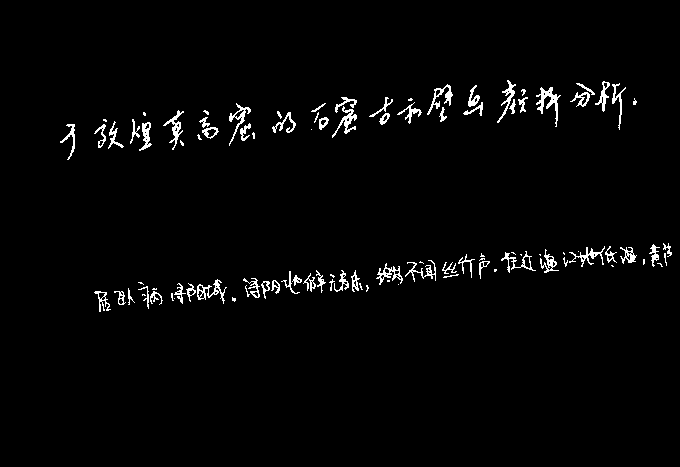 于敦煌莫高窟的石窟古和壁画颜料分析.
居卧病浔阳城。浔阳地僻无音乐,终岁不闻丝竹声.住近湓江地低湿,黄芦